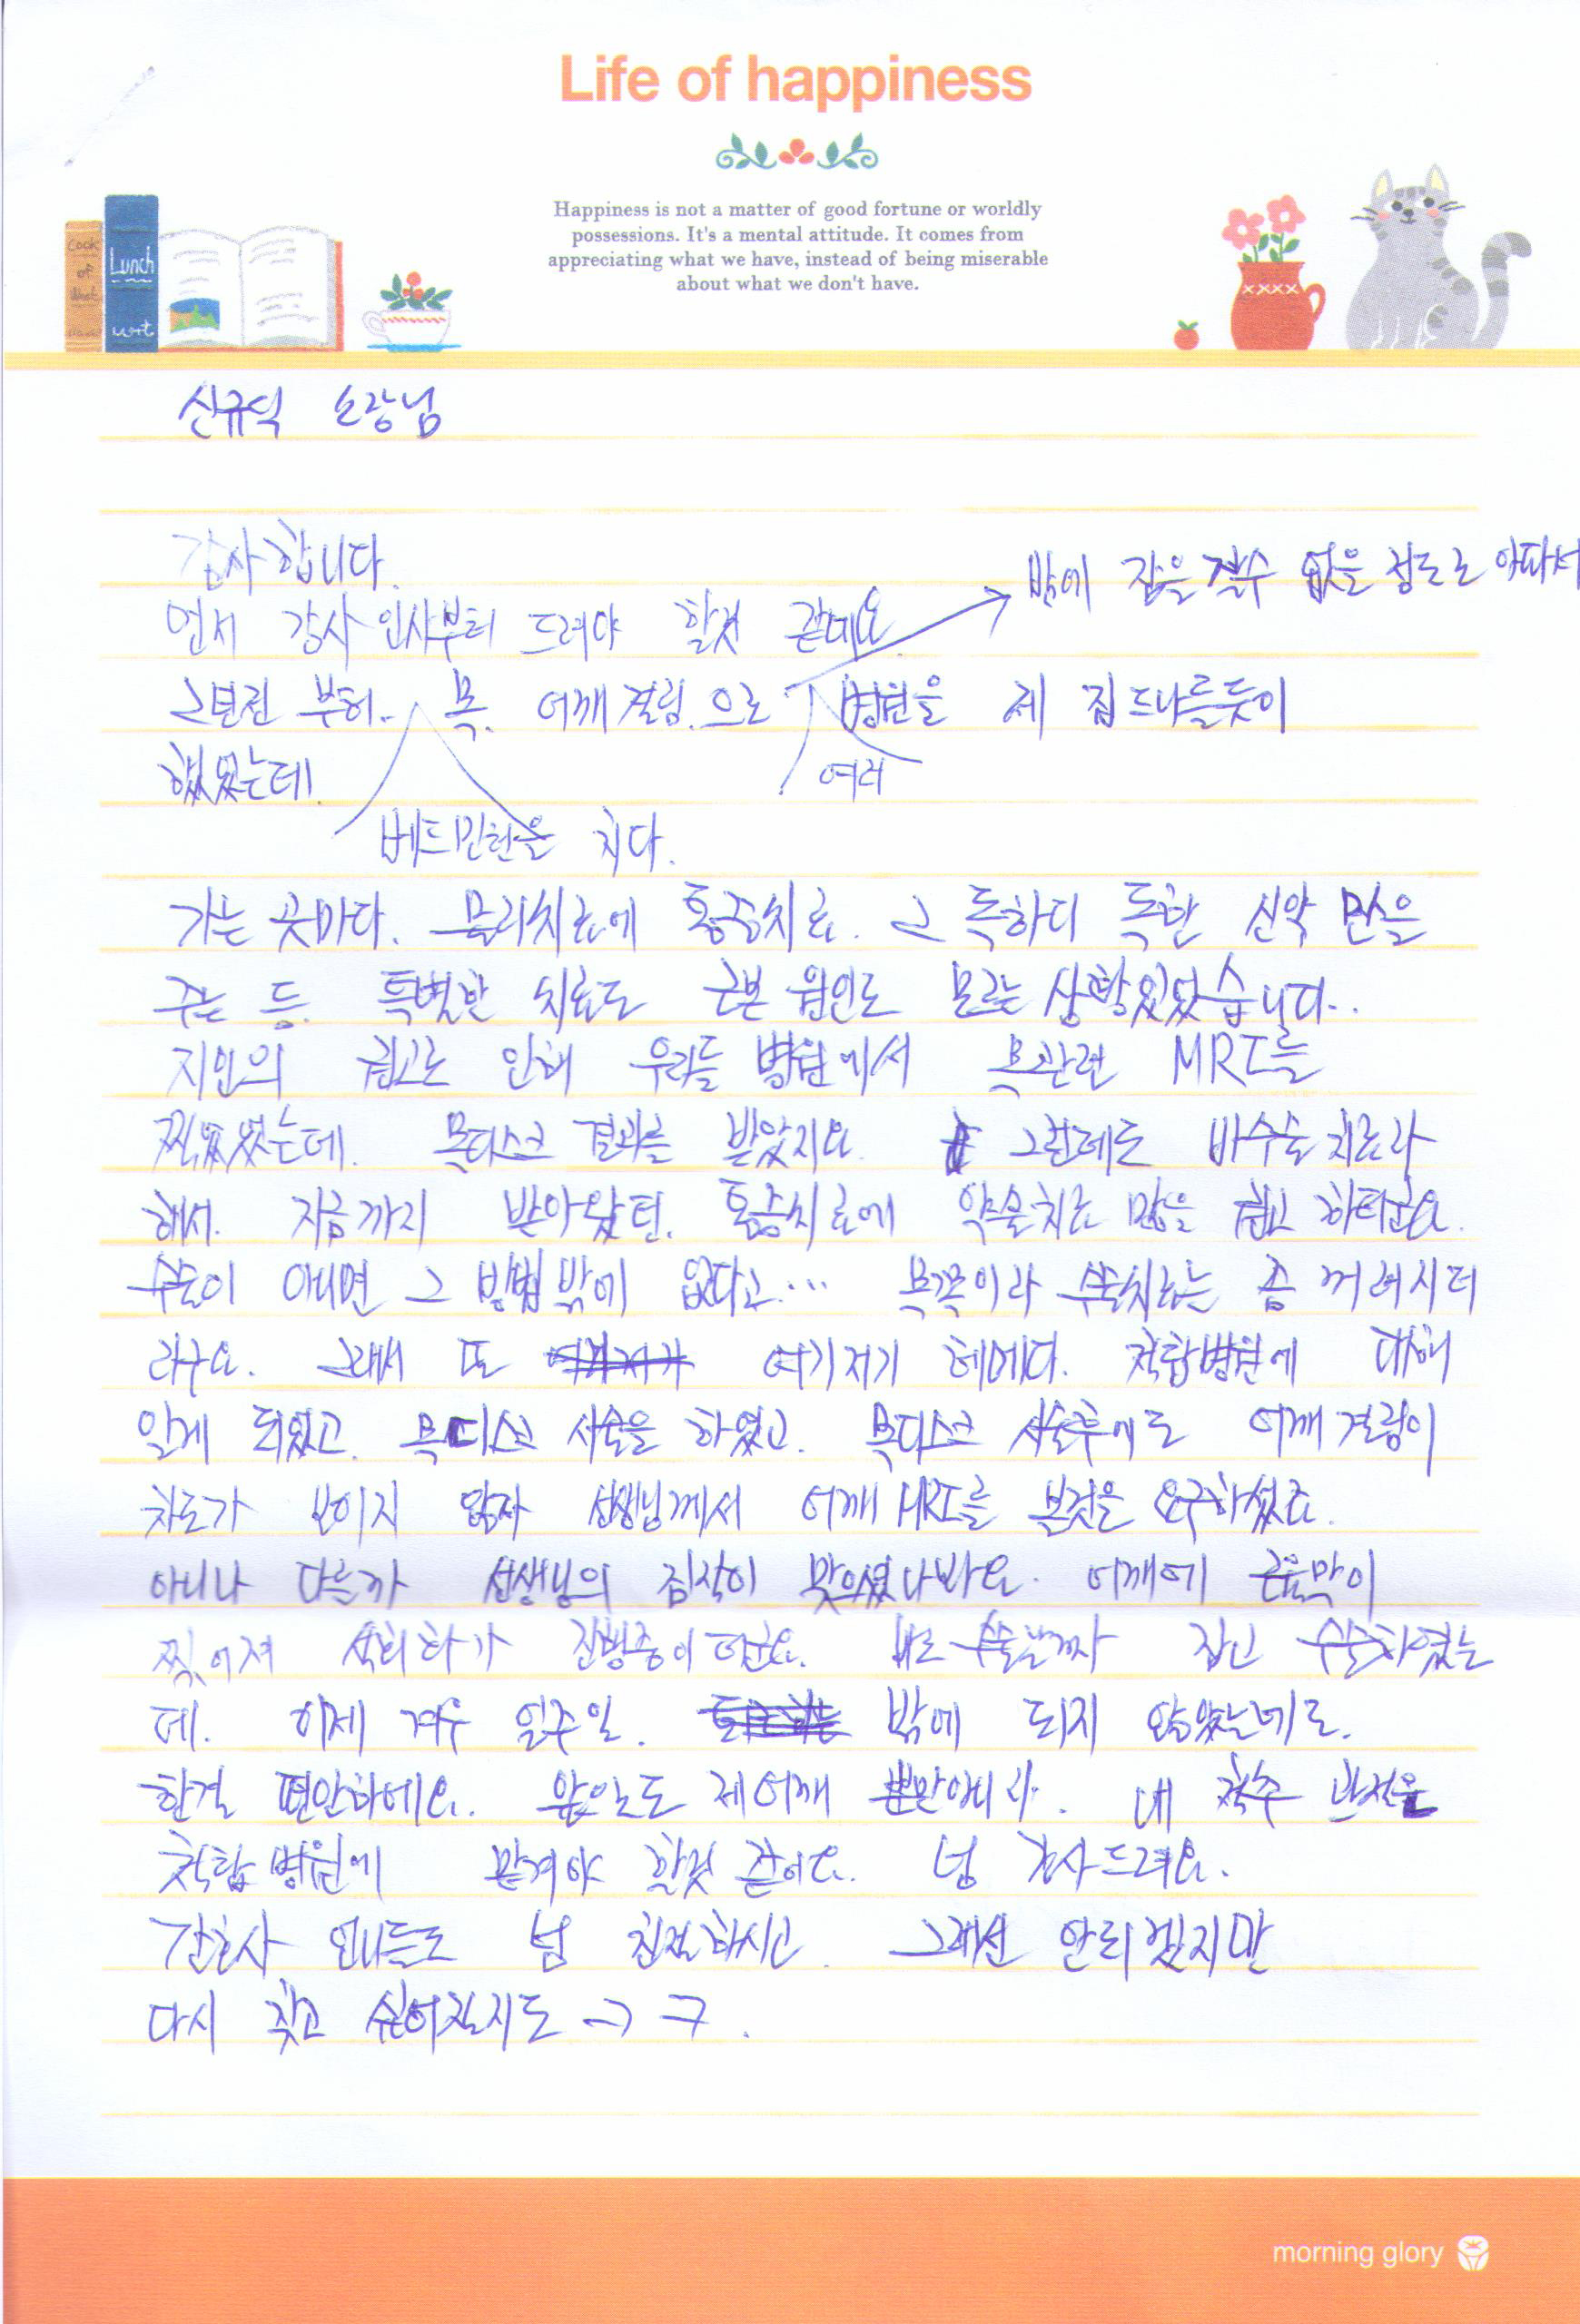 Life of happiness
Happiness is not a matter of good fortune or worldly
possessions. It's a mental attitude. It comes from
appreciating what we have, instead of being miserable
about what we don't have.
Cook
of
Lunch
신규덕 소장님
감사합니다.
먼저 감사 인사부터 드려야 할것 같네요.
밖에 잠을 잘수 없을 정도로 아파서
2년전 부터. 목. 어깨 결림.으로 병원을 제 집 드나들듯이
여러
했었는데.
베드민턴을 치다.
가는 곳마다. 물리치료에 통증치료. 그 독하디 독한 신약 만을
주는 등. 특별한 치료도 근본 원인도 모르는 상황이었습니다..
지인의 권고로 인해 우리들 병원에서 목관련 MRI를
찍었었는데. 목디스크 결과를 받았지요. 그런데도 비수술 치료라
해서. 지금까지 받아왔던. 통증치료에 약물치료 만을 권고 하더군요.
수술이 아니면 그 방법밖에 없다고... 목쪽이라 수술치료는 좀 꺼려시더
라구요. 그래서 또 여기저기 헤메다. 척탑병원에 대해
알게 되었고. 목디스크 시술을 하였고. 목디스크 시술후에도 어깨 결림이
차도가 보이지 않자 선생님께서 어깨 MRI를 볼것을 요구하셨죠.
아니나 다를까 선생님의 짐작이 맞으셨나봐요. 어깨에 근육막이
찢어져 석회화가 진행중이더군요. 바로 수술날짜 잡고 수술하였는
데. 이제 겨우 일주일. 밖에 되지 않았는데도.
한결 편안하에요. 앞으로도 제 어깨 뿐만아니라. 내 척추 관절을
척탑병원에 맡겨야 할것 같아요. 넘 감사드려요.
간호사 언니들도 넘 친절하시고. 그래선 안되겠지만
다시 찾고 싶어질지도 ㅋㅋ.
morning glory